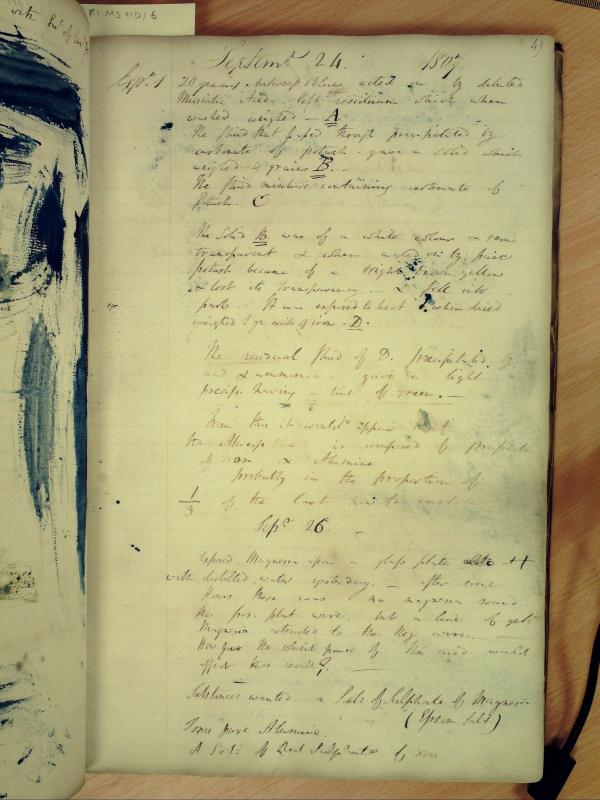 RI MS HD/6
49
Septemr 24. 1807
Expt 1 20 grains Antwerp Blue acted on by diluted
Muriatic Acid left residuum which when
washed weighed — A
The fluid that passed through precipitated by
carbonate of potash gave a solid which
weighed 4 grains B. —
The fluid mixture containing carbonate of
Potash. C
The Solid B was of a white colour & semi
transparent & when acted on by pure
potash became of a bright brown yellow
& lost its transparency — & fell into
parts. It was exposed to heat & when dried
weighed 1 gr. oxide of iron. D.
The residual fluid of D. precipitated by
acid & ammonia gave a light
precip. having a tint of green. —
From this it would appear that
the Antwerp blue is composed of prussiate
of iron & Alumine
probably in the proportion of
1/3 of the last
Sepr 26.
Exposed Magnesia upon a glass plate
with distilled water yesterday. — after some
Hours there was no magnesia round
the pos. plat wire, but a line of
Magnesia extended to the Neg wire. —
How far the solvent power of the acid would
effect this result? —
Substances wanted. a Solt: of Sulphate of Magnesia
(Epsom Salt)
Some pure Alumine.
A Solt: of Sulphate of